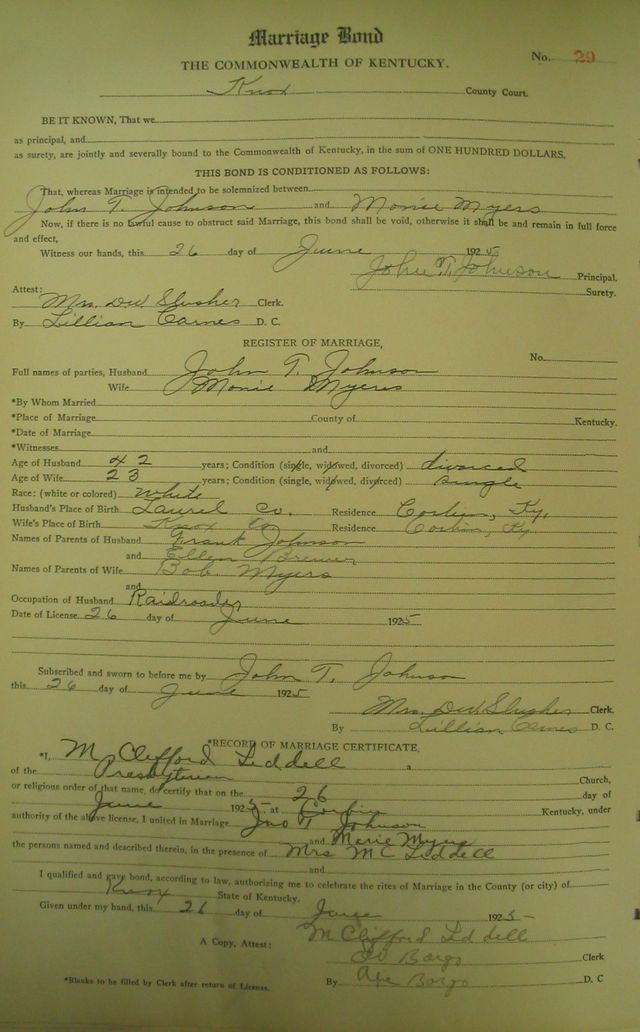 Marriage Bond
No. 29
THE COMMONWEALTH OF KENTUCKY.
Knox County Court.
BE IT KNOWN, That we
as principal, and
as surety, are jointly and severally bound to the Commonwealth of Kentucky, in the sum of ONE HUNDRED DOLLARS,
THIS BOND IS CONDITIONED AS FOLLOWS:
That, whereas Marriage is intended to be solemnized between
John T. Johnson and Monie Myers
Now, if there is no lawful cause to obstruct said Marriage, this bond shall be void, otherwise it shall be and remain in full force
and effect,
Witness our hands, this 26 day of June 1925
John T. Johnson Principal.
Surety.
Attest:
Mrs. DW Slusher Clerk.
By Lillian Carnes D. C.
REGISTER OF MARRIAGE,
No.
Full names of parties, Husband John T. Johnson
Wife Monie Myers
*By Whom Married
*Place of Marriage County of Kentucky.
*Date of Marriage
*Witnesses and
Age of Husband 42 years; Condition (single, widowed, divorced) divorced
Age of Wife 23 years; Condition (single, widowed, divorced) single
Race: (white or colored) white
Husband's Place of Birth Laurel Co. Residence Corbin, Ky.
Wife's Place of Birth Knox Co Residence Corbin, Ky
Names of Parents of Husband Grant Johnson
and Ellen Brewer
Names of Parents of Wife Bob Myers
and
Occupation of Husband Railroader
Date of License 26 day of June 1925
Subscribed and sworn to before me by John T. Johnson
this 26 day of June 1925
Mrs. DW Slusher Clerk.
By Lillian D. C.
*RECORD OF MARRIAGE CERTIFICATE.
*I, M Clifford Liddell a
of the Presbyterian Church,
or religious order of that name, do certify that on the 26 day of
June 1925 at Corbin Kentucky, under
authority of the above license, I united in Marriage Jno T Johnson
and Marie Myers
the persons named and described therein, in the presence of Mrs MC Liddell
and
I qualified and gave bond, according to law, authorizing me to celebrate the rites of Marriage in the County (or city) of
Knox State of Kentucky.
Given under my hand, this 26 day of June 1925
M Clifford Liddell
A Copy, Attest: Bargo Clerk
By Bargo D. C
*Blanks to be filled by Clerk after return of License.